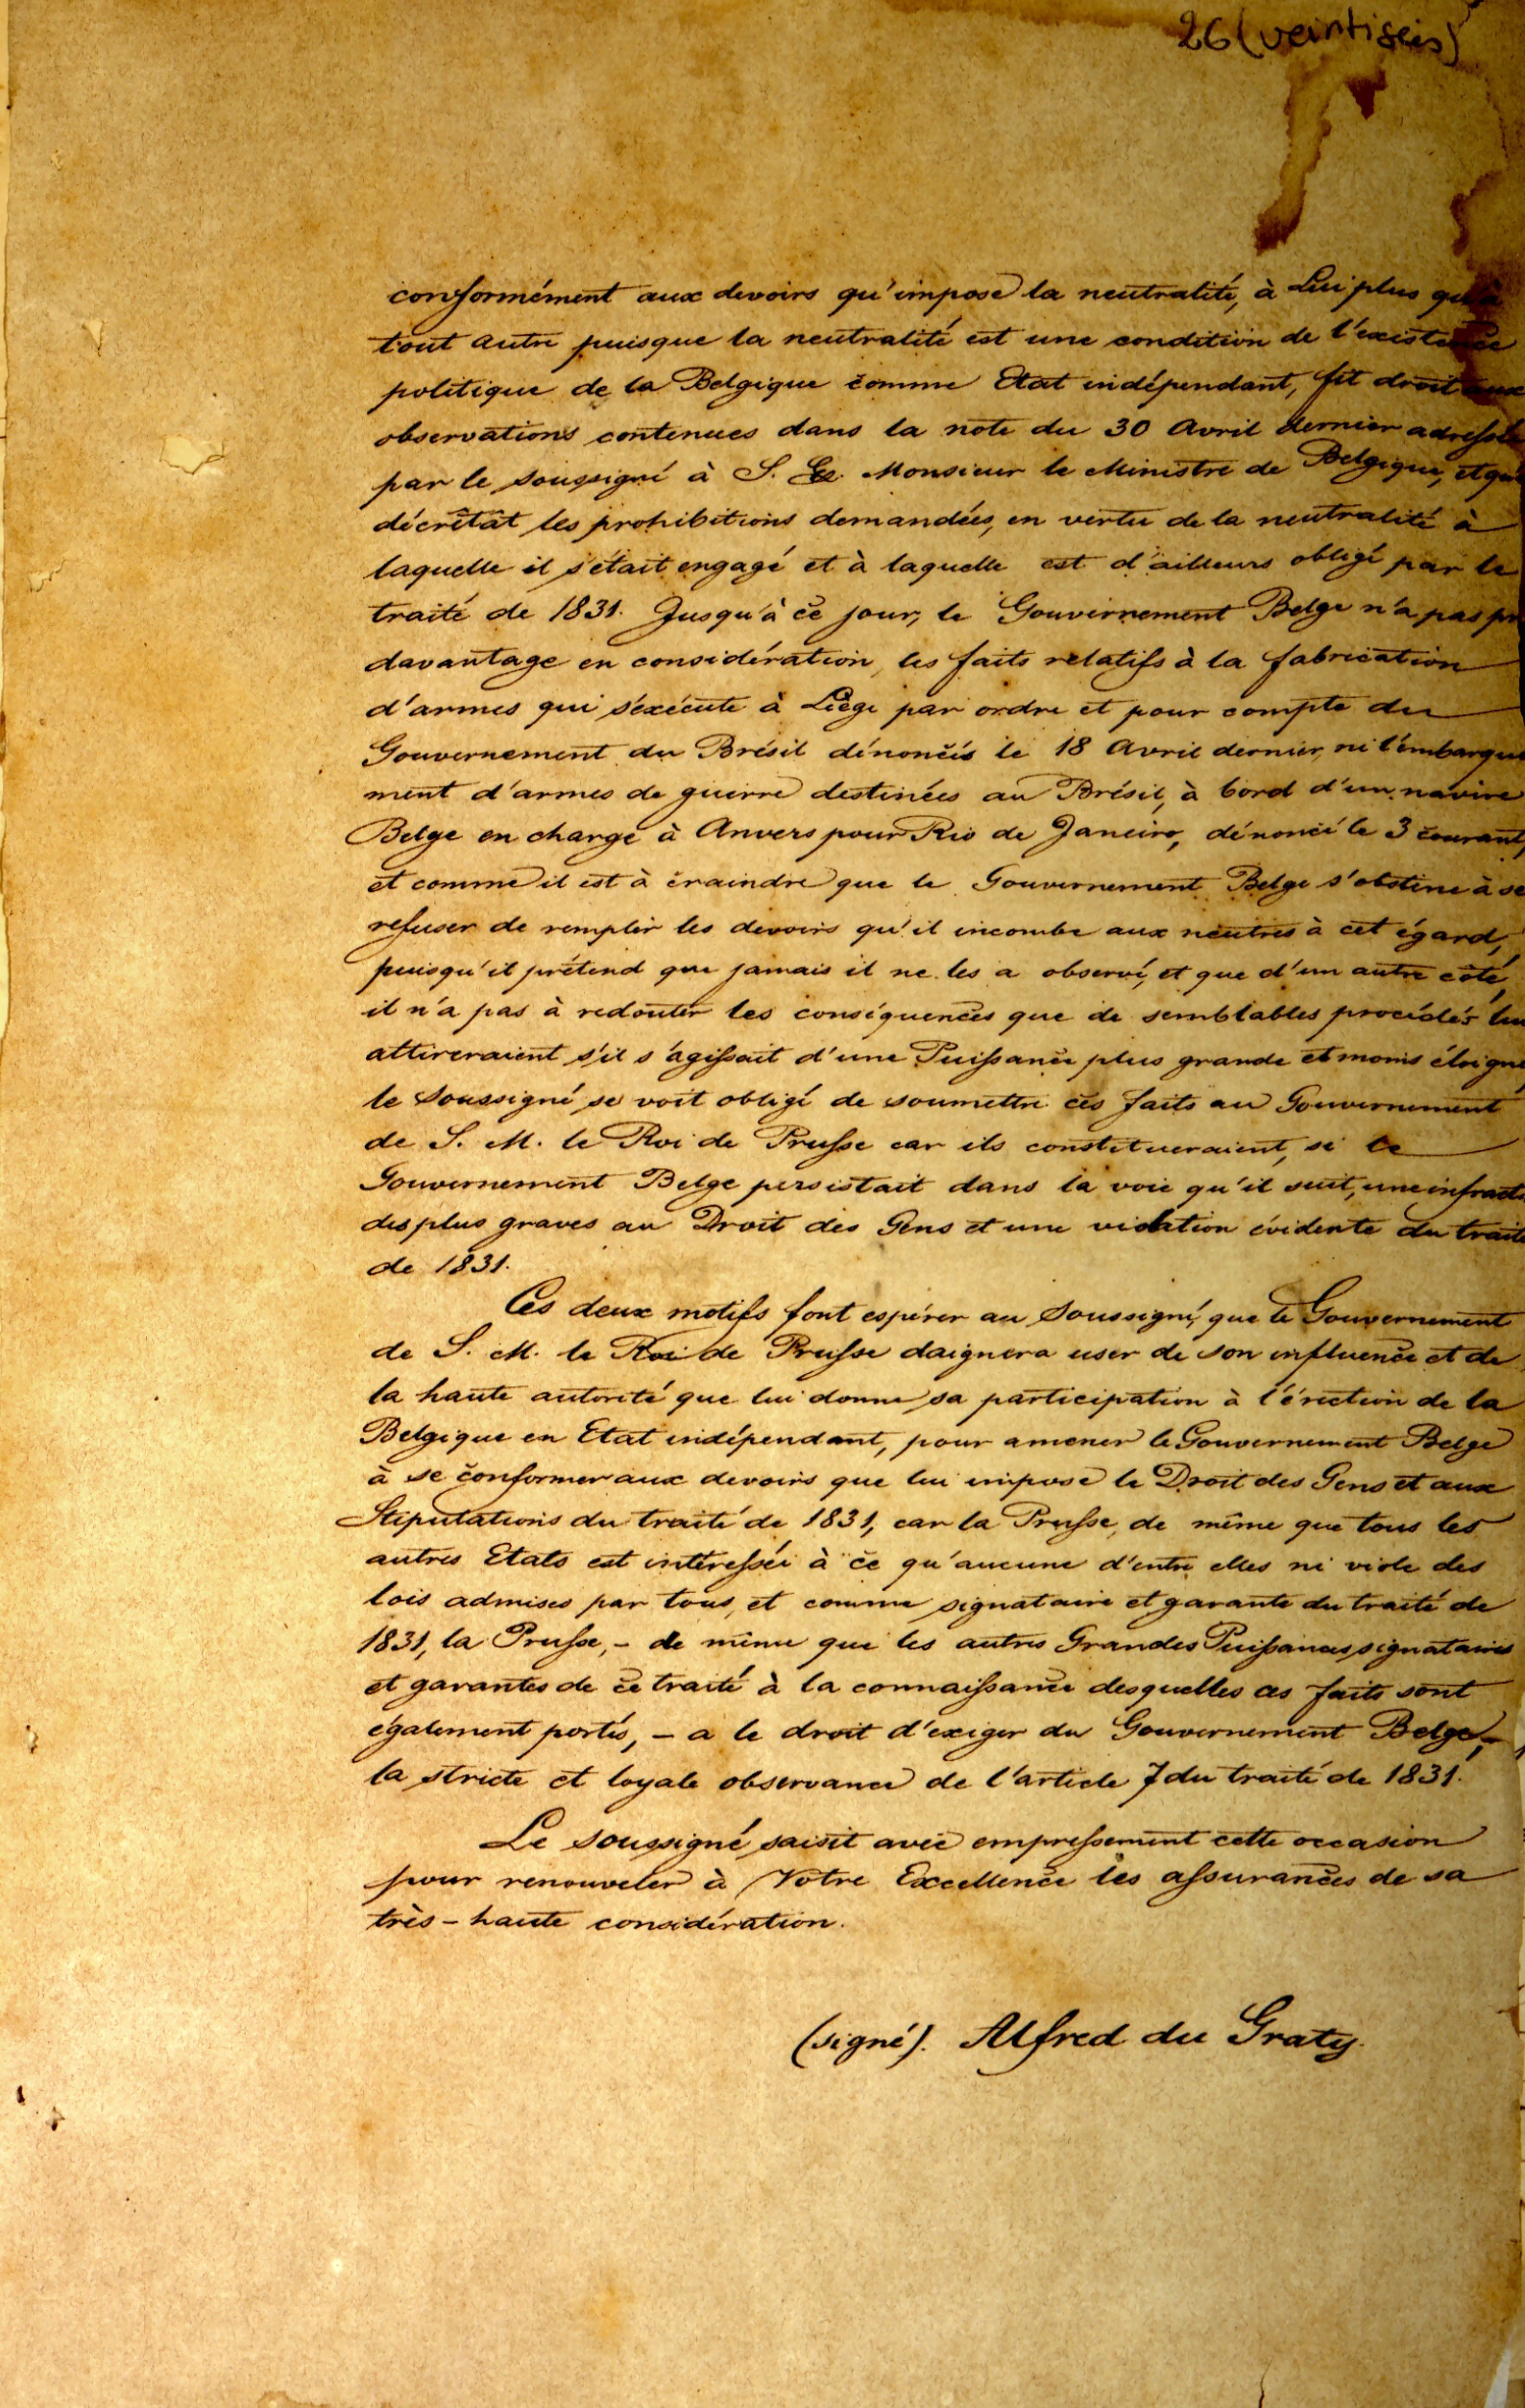 26 (veintiseis)
conformément aux devoirs qu'impose la neutralité, à Lui plus qu'à
tout autre puisque la neutralité est une condition de l'existence
politique de la Belgique comme Etat indépendant, fit droit aux
observations contenues dans la note du 30 Avril dernier adressée
par le soussigné à S. Ex. Monsieur le Ministre de Belgique, et qu'
décrêtât les prohibitions demandées, en vertu de la neutralité à
laquelle il s'était engagé et à laquelle est d'ailleurs obligé par le
traité de 1831. Jusqu'à ce jour, le Gouvernement Belge n'a pas pr
davantage en considération, les faits relatifs à la fabrication
d'armes qui s'éxécute à Liège par ordre et pour compte du
Gouvernement du Brésil dénoncés le 18 Avril dernier, ni l'embarque
ment d'armes de guerre destinées au Brésil, à bord d'un navire
Belge en charge à Anvers pour Rio de Janeiro, dénoncé le 3 courant,
et comme il est à craindre que le Gouvernement Belge s'obstine à se
refuser de remplir les devoirs qu'il incombe aux neutres à cet égard,
puisqu'il prétend que jamais il ne les a observé, et que d'un autre côté,
il n'a pas à redouter les conséquences que de semblables procédés lui
attireraient s'il s'agissait d'une Puissance plus grande et moins éloigné
le soussigné se voit obligé de soumettre ces faits au Gouvernement
de S. M. le Roi de Prusse car ils constitueraient, si le
Gouvernement Belge persistait dans la voie qu'il suit, une infract
des plus graves au Droit des Gens et une violation évidente du traité
de 1831.
Ces deux motifs font espérer au Soussigné, que le Gouvernement
de S. M. le Roi de Prusse daignera user de son influence et de
la haute autorité que lui donne sa participation à l'érection de la
Belgique en Etat indépendant, pour amener le Gouvernement Belge
à se conformer aux devoirs que lui impose le Droit des Gens et aux
Stipulations du traité de 1831, car la Prusse, de même que tous les
autres Etats est intéressée à ce qu'aucune d'entre elles ne viole des
lois admises par tous, et comme signataire et garante du traité de
1831, la Prusse, - de même que les autres Grandes Puissances signataires
et garantes de ce traité à la connaissance desquelles ces faits sont
également portés, - a le droit d'exiger du Gouvernement Belge,
la stricte et loyale observance de l'article 7 du traité de 1831.
Le soussigné saisit avec empressement cette occasion
pour renouveler à Votre Excellence les assurances de sa
très-haute considération.
(signé). Alfred du Graty.